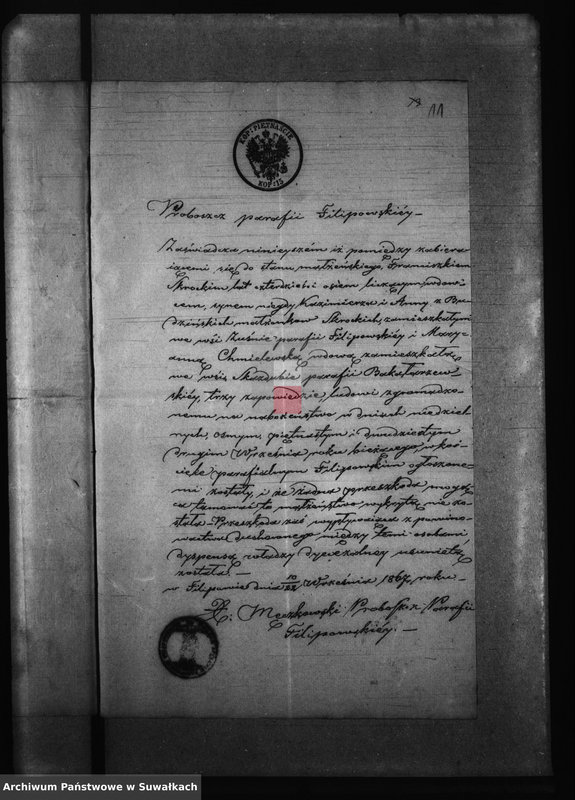 11
KOP: PIĘTNAŚCIE
KOP: 15
Proboszcz parafii Filipowskiéy
Zaświadcza ninieyszém iż pomiędzy zabiera
iącemi się do stanu małżeńskiego, Franciszkiem
Skrockim lat czterdzieści ośm liczącym wdow
cem, synem niegdy Kazimierza i Anny z Bu
dzińskich małżonków Skrockich, zamieszkałym
we wśi Zusnie parafii Filipowskiéy i Mary
anną Chmielewską wdową zamieszkałą
we wśi Skazdubie parafii Bakałarzew
skiéy, trzy zapowiedzie ludowi zgromadzo
nemu na nabożeństwo w dniach niedziel
nych, osmym, piętnastym i dwudziestym
drugim Września roku bieżącego, w koś
ciele parafialnym Filipowskim ogłoszone
mi zostały, i że żadna przeszkoda mogą
ca tamować to małżeństwo wykrytą nie zo
stała. Przeszkoda zaś wypływaiąca z powino
wactwa duchownego między temi osobami
dyspensą władzy dyecezalney usuniętą
została.
w Filipowie dnia 10/22 Września 1867 roku
X. Męczkowski Proboszcz Parafii
Filipowskiéy.
Archiwum Państwowe w Suwałkach